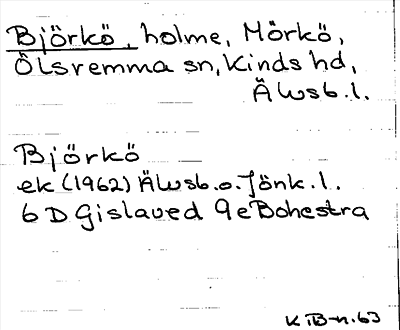 Björkö, holme, Mörkö,
Ölsremma sn, Kinds hd,
Älvsb. l.
Björkö
ek (1962) Älvsb. o. Jönk. l.
6 D Gislaved 9e Bohestra
K TB-n. 63